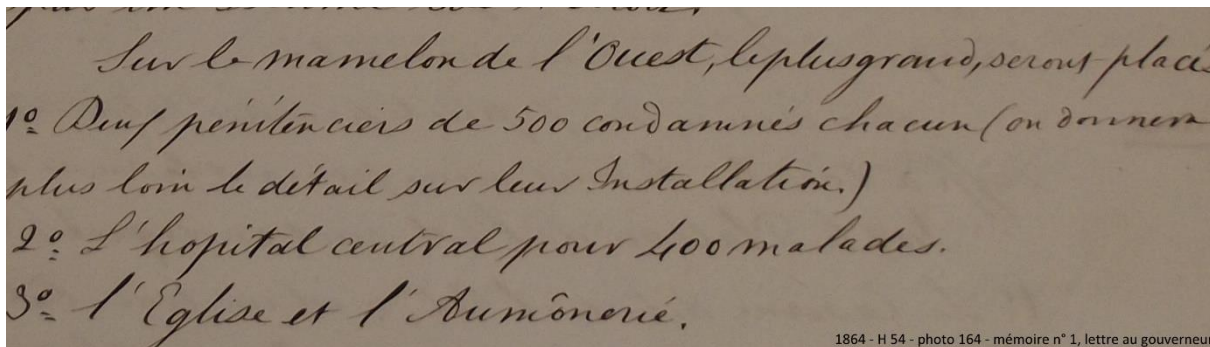 Sur le mamelon de l'Ouest, le plus grand, seront placés
1º Deux péniténciers de 500 condamnés chacun (on donnera
plus loin le détail sur leur Installation.)
2º L'hopital central pour 400 malades.
3º l'Eglise et l'Aumônerié.
1864 - H 54 - photo 164 - mémoire n° 1, lettre au gouverneur